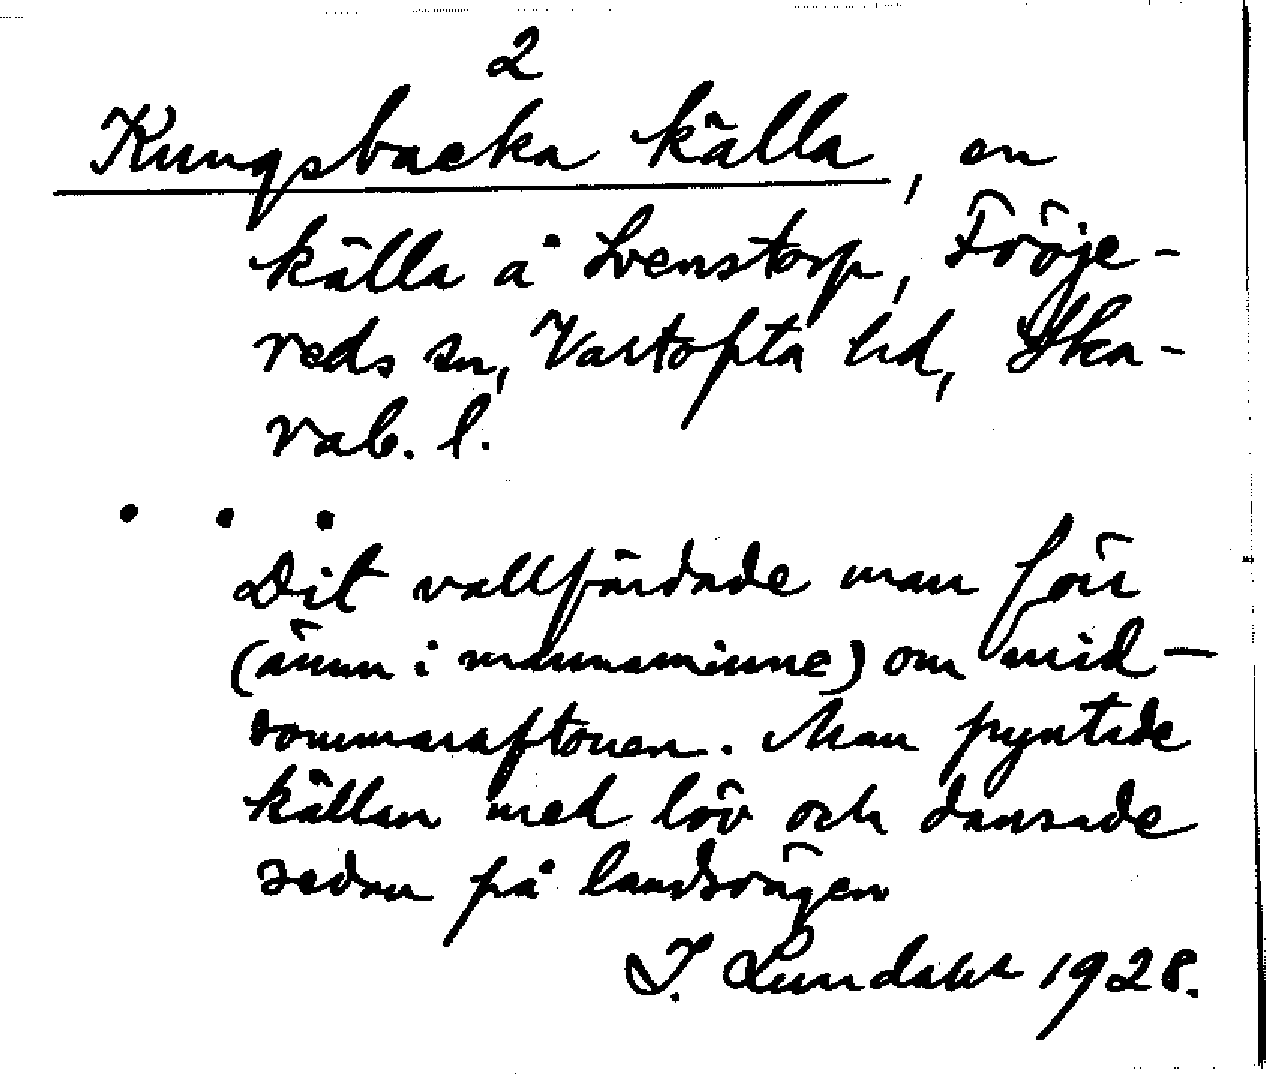 2
Kungsbacka källa, en
källa å Svenstorp, Fröje-
reds sn, Vartofta hd, Ska-
rab. l.
. . .
Dit vallfärdade man förr
(ännu i mannaminne) om mid-
sommaraftonen. Man pyntade
källan med löv och dansade
sedan på landsvägen
I. Lundahl 1928.